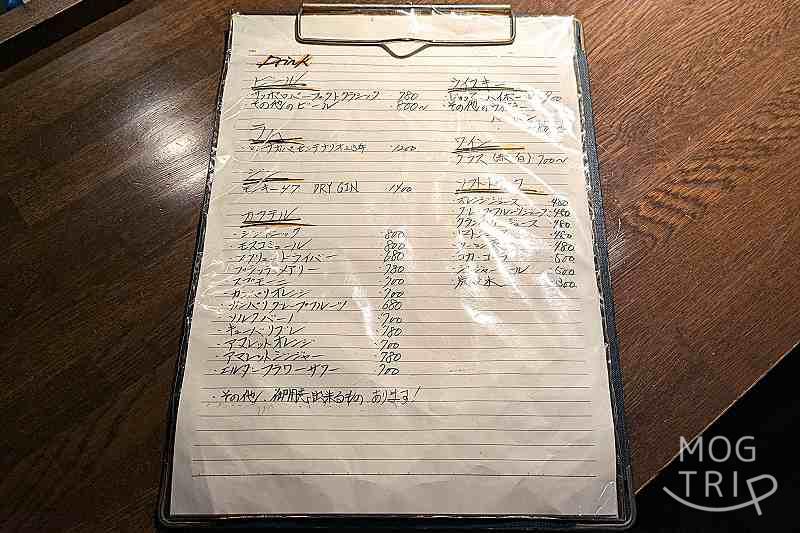 Drink
ビール
・サッポロパーフェクトクラシック 780
・その他のビール 800〜
ラム
1200
ジン
・モンキー47 DRY GIN 1400
カクテル
・ジントニック 800
・モスコミュール 800
・スクリュードライバー 680
・ブラッディメアリー 780
・スプモーニ 700
・カンパリオレンジ 700
・カンパリグレープフルーツ 680
・シルクバーノ 700
・キューバリブレ 780
・アマレットオレンジ 700
・アマレットジンジャー 780
・エルダーフラワーサワー 700
・その他、御用意出来るもの あります!
ウイスキー
ハイボール 700
・その他のウイスキー
ワイン
グラス(赤、白) 700〜
ソフトドリンク
・オレンジジュース 480
・グレープフルーツジュース 480
ジュース 480
・トマトジュース 480
・ウーロン 480
・コカ・コーラ 500
・ジンジャーエール 500
・炭酸水
MOG
TRIP